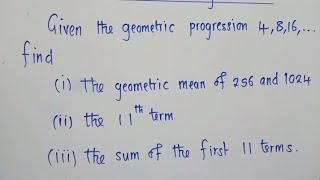 Given the geometric progression 4,8,16,...
find
(i) The geometric mean of 256 and 1024
(ii) the 11th term
(iii) the sum of the first 11 terms.